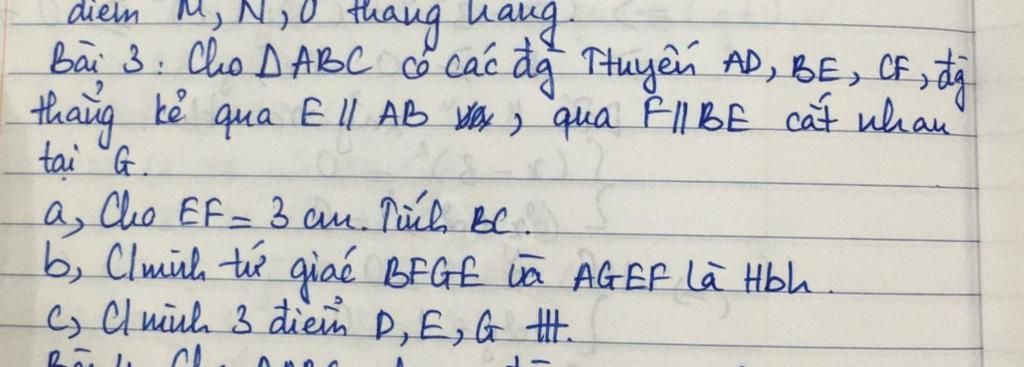 điểm M, N, O thẳng hàng.
Bài 3: Cho ΔABC có các đg Ttuyến AD, BE, CF, đg
thẳng kẻ qua E // AB , qua F // BE cắt nhau
tại G.
a, Cho EF = 3 cm. Tính BC.
b, C/minh tứ giác BFGE và AGEF là Hbh.
c, C/minh 3 điểm D, E, G